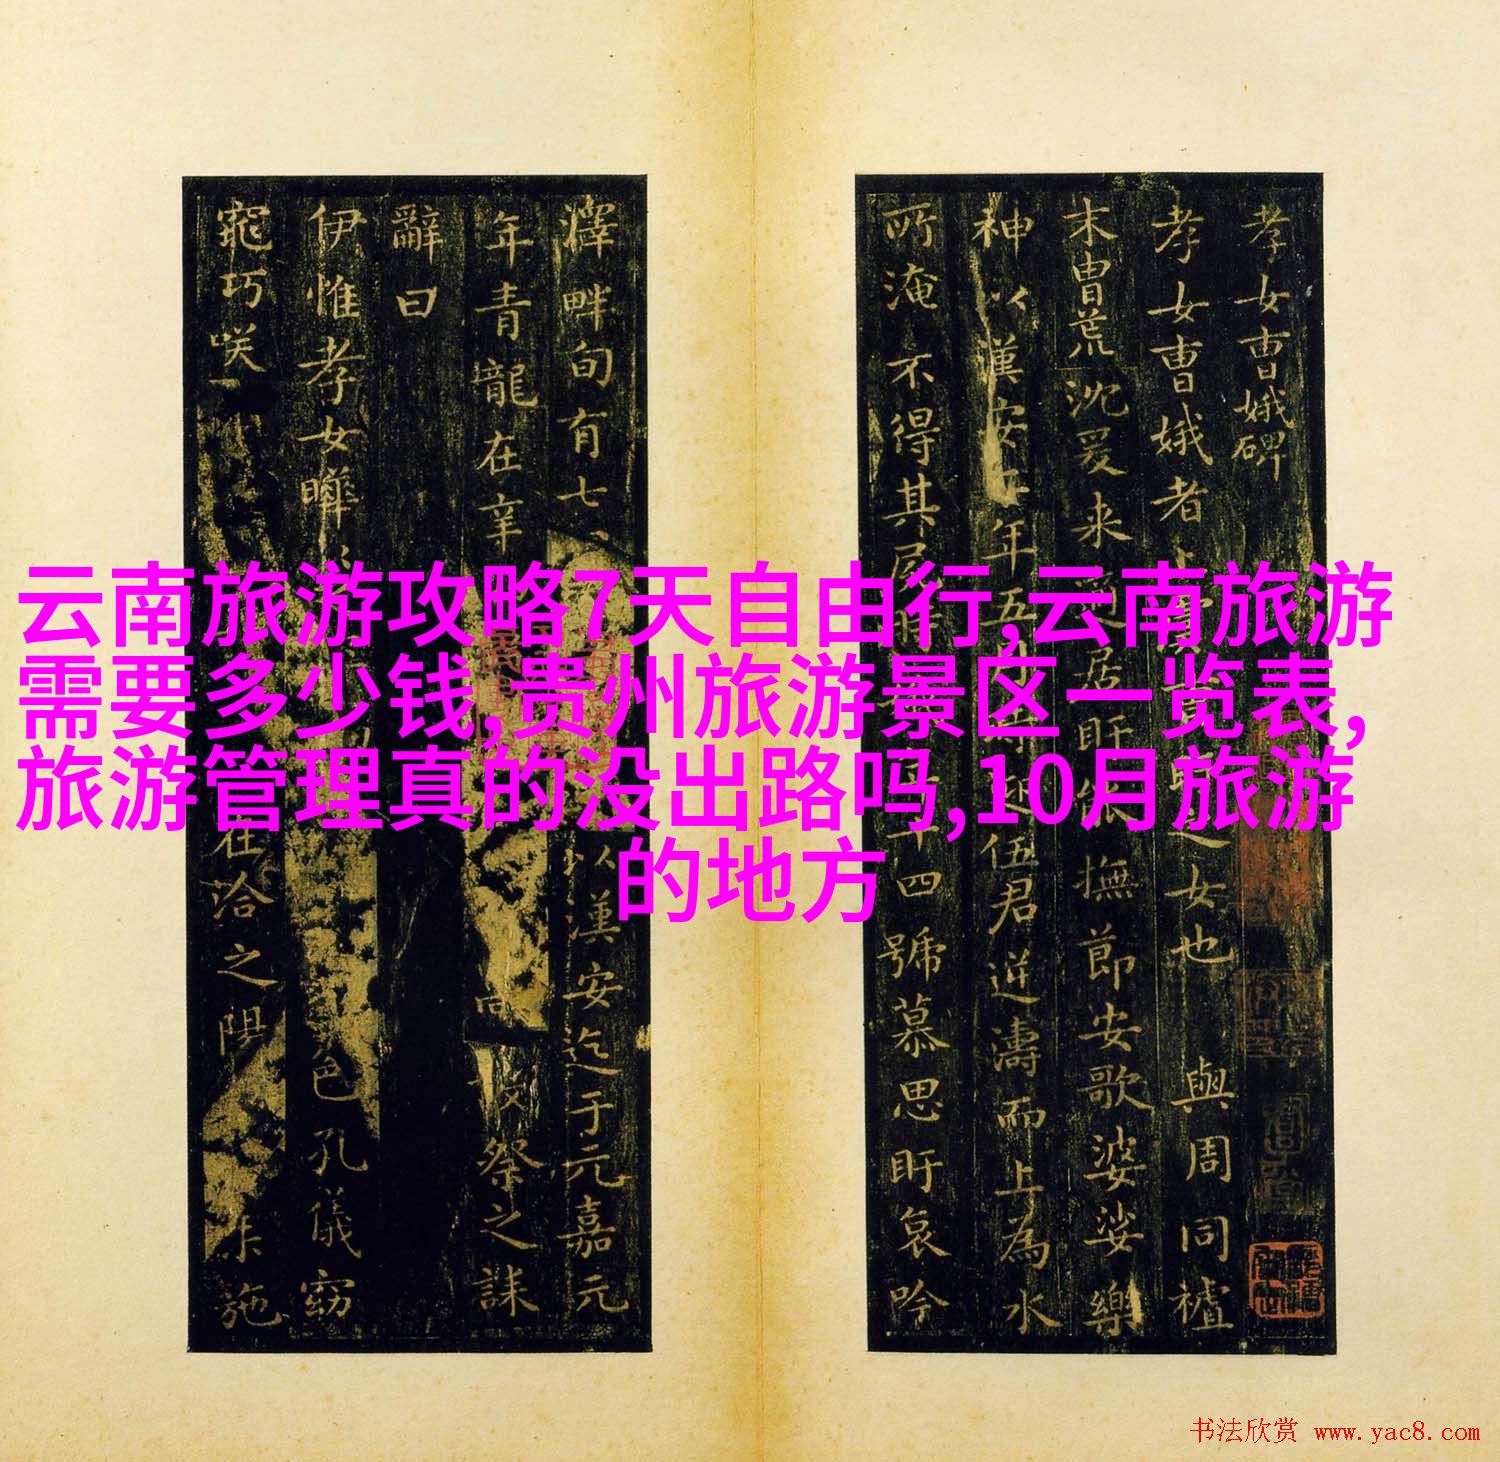 孝女曹娥碑
孝女曹娥者
之女也與周同
末曹荒沈爰来
居盱能撫節安歌婆娑樂
神以漢安二年五月
迎伍君逆濤而上為水
所淹不得其屍
十四號慕思盱哀吟
澤畔旬有七
以漢安迄于元嘉元
年青龍在辛
祭之誄
辭曰
伊惟孝女曄
色孔儀窈
窕巧咲
在洽之陽
施
云南旅游攻略7天自由行,云南旅游
需要多少钱,贵州旅游景区一览表,
旅游管理真的没出路吗,10月旅游
的地方
书法欣赏 www.yac8.com